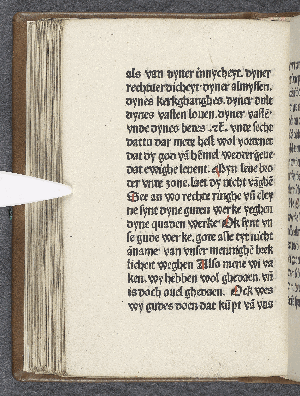 als van dyner innycheyt. dyner
rechtuerdicheyt. dyner almyssen.
dynes kerkghanghes. dyner
dynes vasten louen. dyner
vnde dynes bedes ꝛc̄. vnte seche
dattu dar mede hest wol vordenet
dat dy god vā hēmel weddergeue
dat ewighe leuent. Myn leue bro
der vnte zone. laet dy nicht
See an wo rechte ringhe vn̄ cley
ne synt dyne guden werke yeghen
dyne quaden werke Ok synt vn
se gude werke. gote alse eyt nicht
āname van vnser mennighe
lichen weghen Also mene wi va
ken. wy hebben wol ghedaen. vn̄
is doch ouel ghedaen. Ock wes
wy gudes doen dat kūpt vā vns